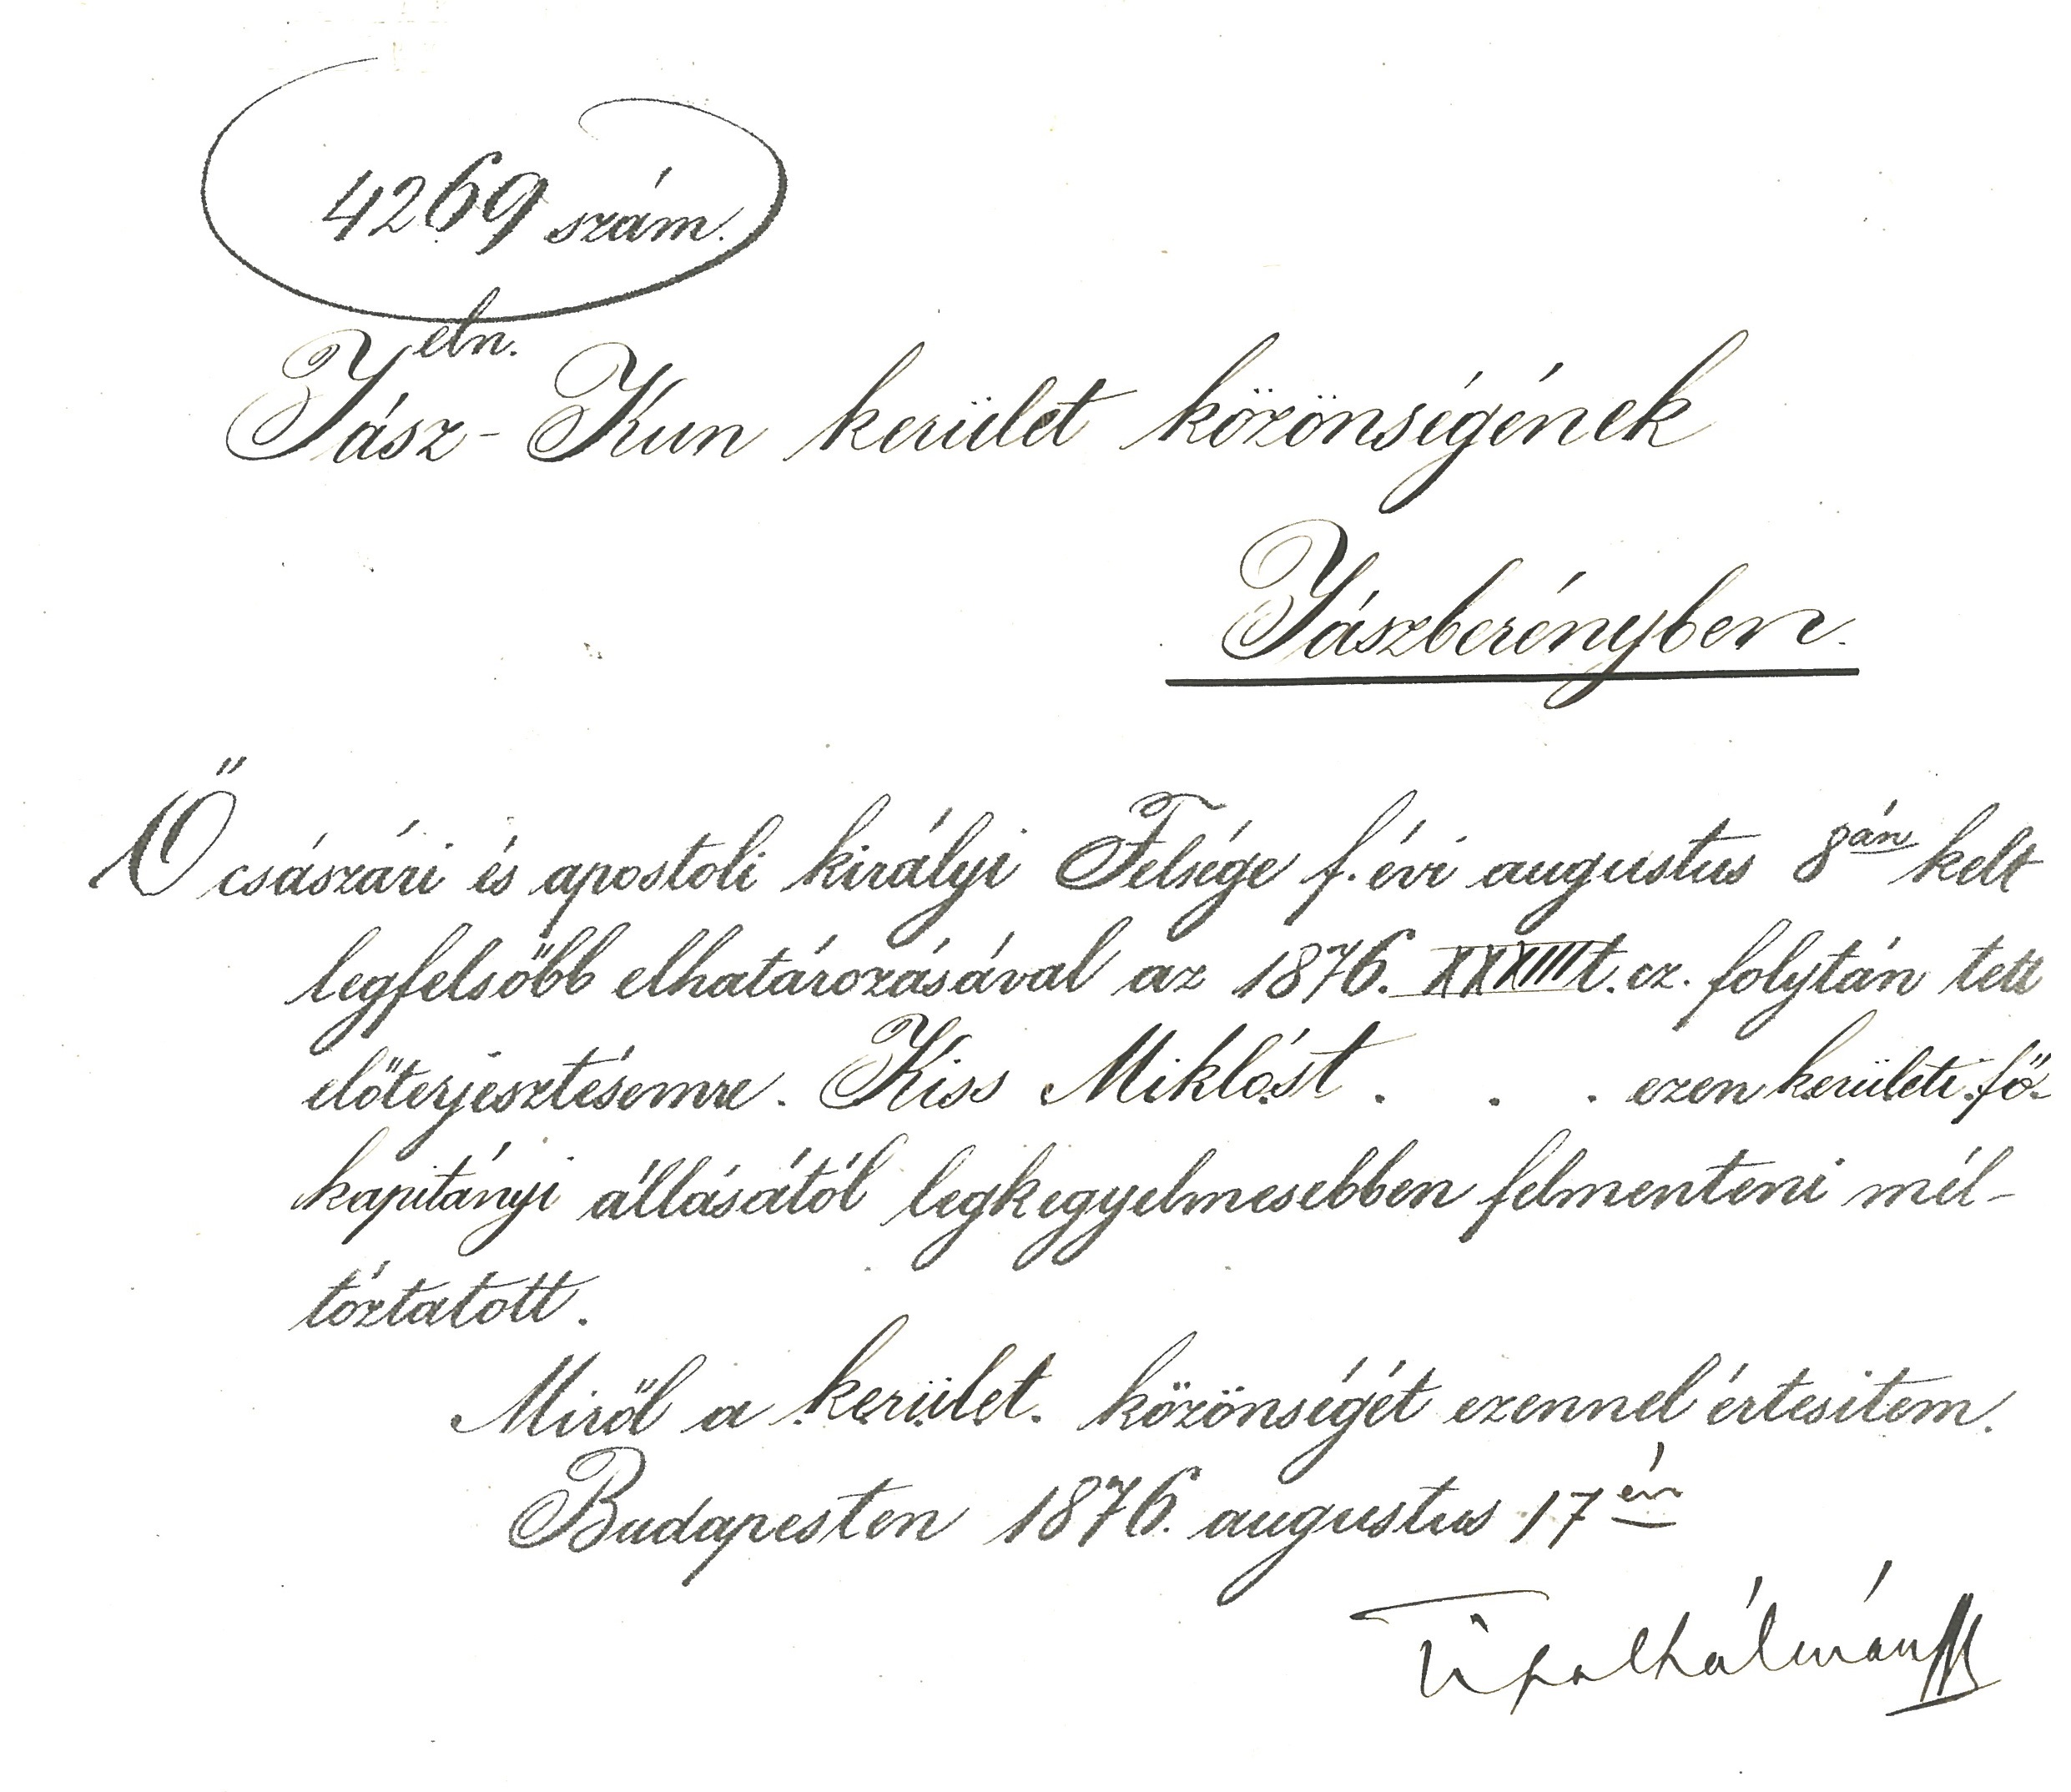 4269 szám.
eln.
Jász-Kun kerület közönségének
Jászberényben.
Ő császári és apostoli királyi Felsége f. évi augustus 8án kelt
legfelsőbb elhatározásával az 1876. XXXIII t. cz. folytán tett
előterjesztésemre. Kiss Miklóst . . . ezen kerületi fő-
kapitányi állásától legkegyelmesebben felmenteni mél-
tóztatott.
Miről a kerület. közönségét ezennel értesitem.
Budapesten 1876. augustus 17én
Tisza Kálmán